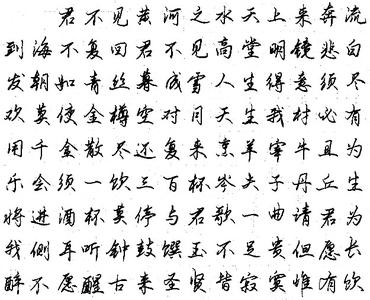 君不见黄河之水天上来奔流
到海不复回君不见高堂明镜悲白
发朝如青丝暮成雪人生得意须尽
欢莫使金樽空对月天生我材必有
用千金散尽还复来烹羊宰牛且为
乐会须一饮三百杯岑夫子丹丘生
将进酒杯莫停与君歌一曲请君为
我侧耳听钟鼓馔玉不足贵但愿长
醉不愿醒古来圣贤皆寂寞惟有饮